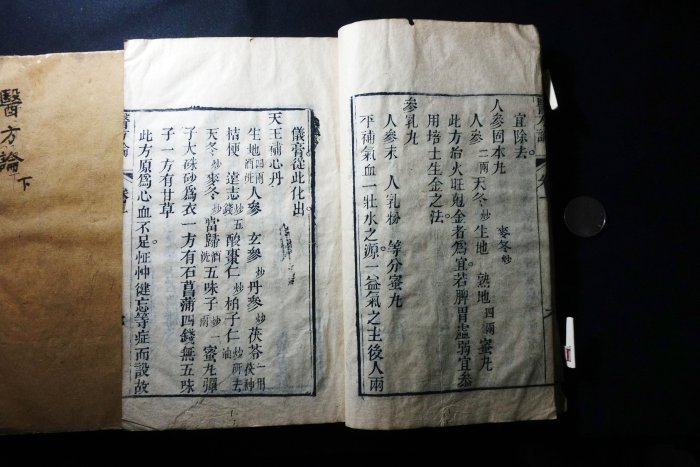 宜除去。
人參固本丸
人參 二兩 天冬 炒 麥冬 炒 生地 熟地 四兩 蜜丸
此方治火旺剋金者爲宜若脾胃虛弱宜參
用培土生金之法。
參乳丸
人參末 人乳粉 等分蜜丸
平補氣血一壯水之源一益氣之主後人兩
儀膏從此化出。
天王補心丹
生地 四兩酒洗 人參 玄參 炒 丹參 炒 茯苓 一用茯神
桔梗 遠志 炒五錢 酸棗仁 炒 柏子仁 炒 去油
天冬 炒 麥冬 炒 當歸 酒洗 五味子 炒一兩 蜜丸彈
子大硃砂爲衣一方有石菖蒲四錢無五味
子一方有甘草
此方原爲心血不足怔忡健忘等症而設故
醫方論
醫方論 下